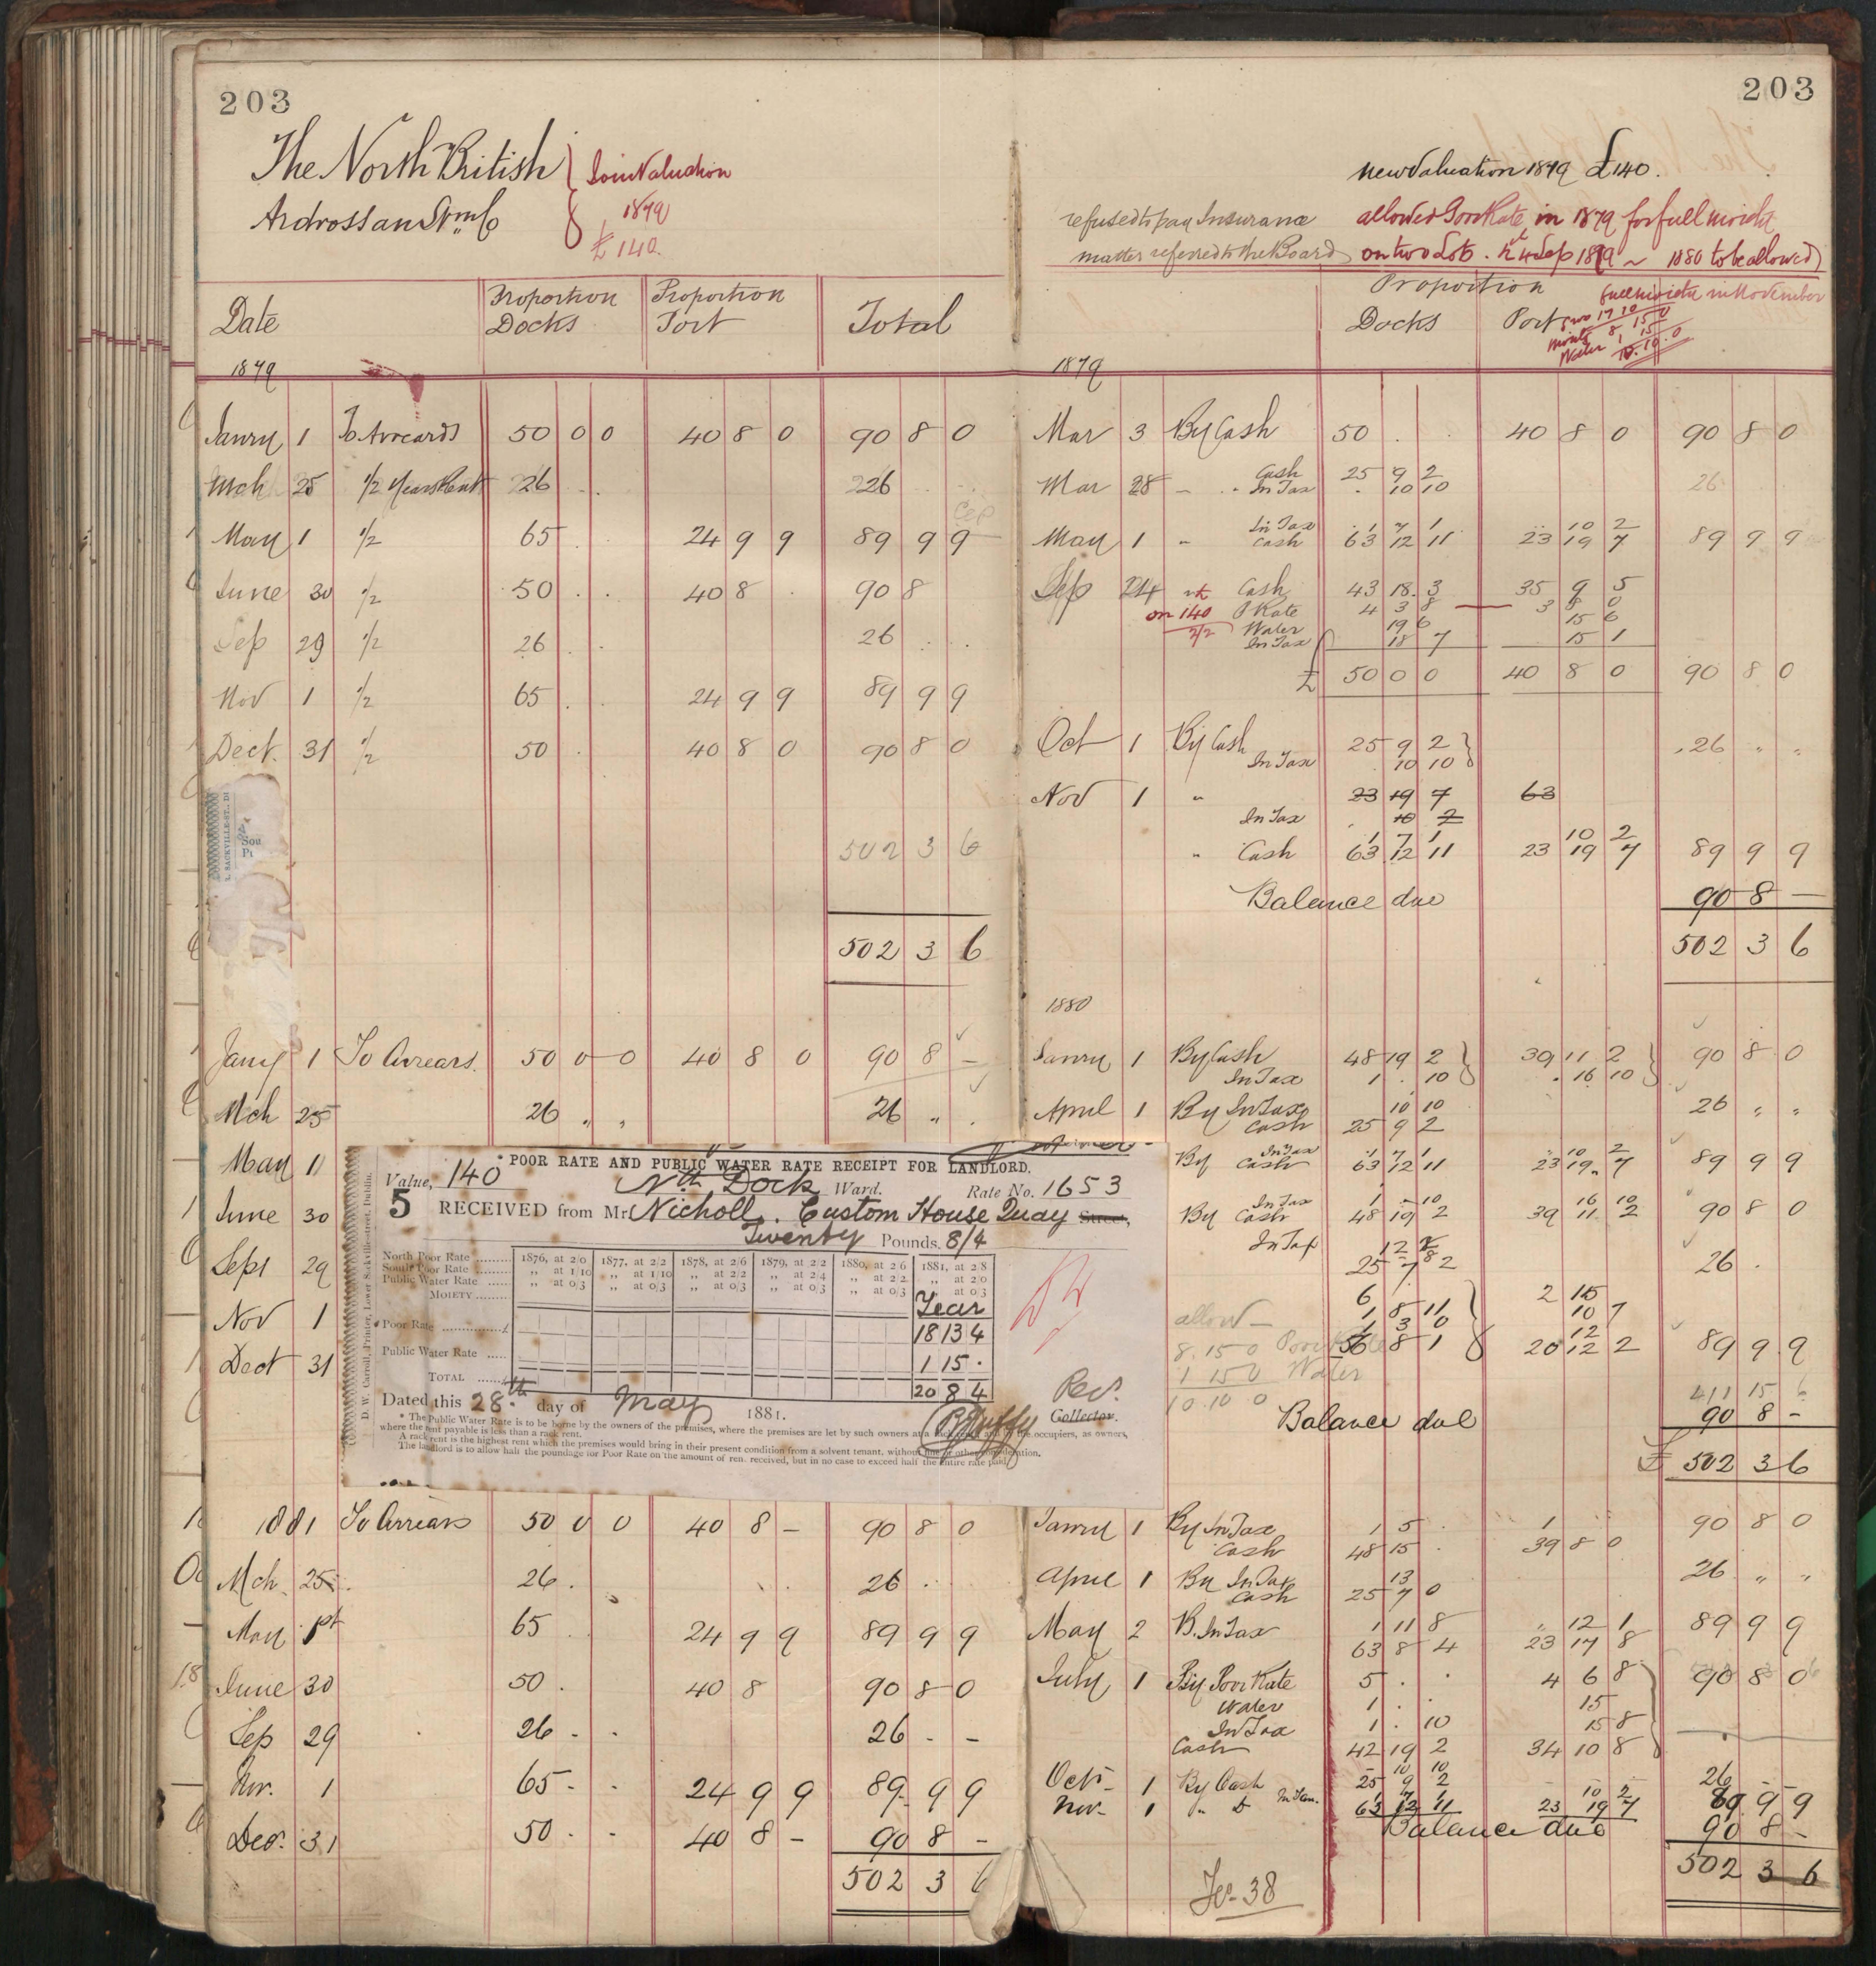 203
The North British
Ardrossan Stm Co
Join Valuation
1879
£140.
Date
Proportion Docks
Proportion Port
Total
1879
Janry 1 To Arrears 50 0 0 40 8 0 90 8 0
Mch 25 1/2 Years Rent 26 . . 26 . .
May 1 1/2 65 . . 24 9 9 89 9 9
June 30 1/2 50 . . 40 8 . 90 8
Sep 29 1/2 26 . . 26 . .
Nov 1 1/2 65 . . 24 9 9 89 9 9
Dect. 31 1/2 50 . 40 8 0 90 8 0
502 3 6
502 3 6
Jany 1 To Arrears. 50 0 0 40 8 0 90 8 –
Mch 25 26 „ „ 26 „ .
May 1
June 30
Sept 29
Nov 1
Dect 31
POOR RATE AND PUBLIC WATER RATE RECEIPT FOR LANDLORD.
Value, 140 Nth Dock Ward. Rate No. 1653
5 RECEIVED from Mr Nicholl. Custom House Quay Street,
Twenty Pounds. 8/4
North Poor Rate 1876, at 2/0 1877, at 2/2 1878, at 2/6 1879, at 2/2 1880, at 2 6 1881, at 2/8
South Poor Rate „ at 1/10 „ at 1/10 „ at 2/2 „ at 2/4 „ at 2 2 „ at 2/0
Public Water Rate „ at 0/3 „ at 0/3 „ at 0/3 „ at 0/3 „ at 0/3 „ at 0/3
MOIETY Year
Poor Rate 18 13 4
Public Water Rate 1 15 .
TOTAL 20 8 4
Dated this 28th day of May 1881. Collector.
* The Public Water Rate is to be borne by the owners of the premises, where the premises are let by such owners at a rack rent and by the occupiers, as owners,
where the rent payable is less than a rack rent.
A rack rent is the highest rent which the premises would bring in their present condition from a solvent tenant, without fine or other consideration.
The landlord is to allow half the poundage for Poor Rate on the amount of ren. received, but in no case to exceed half the entire rate paid.
D. W. Carroll, Printer, Lower Sackville-street, Dublin.
1881 To Arrears 50 0 0 40 8 – 90 8 0
Mch 25 26 . 26 .
May 1st 65 . 24 9 9 89 9 9
June 30 50 . 40 8 90 8 0
Sep 29 26 - - 26 - -
Nov. 1 65 - - 24 9 9 89 9 9
Dec. 31 50 - - 40 8 – 90 8 –
502 3 6
203
New Valuation 1879 £140.
refused to pay Insurance
matter referred to the Board
allowed Poor Rate in 1879 for full moiety
on two lots. 24 Sep 1879 ~ 1880 to be allowed
full moiety in November
Proportion
Docks
Port
1879
Mar 3 By Cash 50 . . 40 8 0 90 8 0
Mar 28 – „ Cash 25 9 2
In Tax . 10 10 26
May 1 „ In Tax 1 7 1 10 2
Cash 63 12 11 23 19 7 89 9 9
Sep 24 Cash 43 18 3 35 9 5
on 140 P Rate 4 3 8 3 8 0
2/2 Water 19 6 15 6
In Tax 18 7 15 1
£ 50 0 0 40 8 0 90 8 0
Oct 1 By Cash 25 9 2
In Tax 10 10 26 „ „
Nov 1 „ 23 19 7 63
In Tax . 10 2
1 7 1 10 2
„ Cash 63 12 11 23 19 7 89 9 9
Balance due 90 8 –
502 3 6
1880
Janry 1 By Cash 48 19 2 39 11 2 90 8 0
In Tax 1 . 10 . 16 10
April 1 By In Tax 10 10 26 „ „
Cash 25 9 2
By In Tax 1 7 1 10 2
Cash 63 12 11 23 19 7 89 9 9
By In Tax 1 – 10 16 10
Cash 48 19 2 39 11 2 90 8 0
In Tax
26 .
allow –
8. 15 0 Poor Rate 56 8 1 20 12 2 89 9 9
1 15 0 Water
10. 10 0
411 15 6
Balance due 90 8 –
£ 502 3 6
Janry 1 By In Tax 1 5 . 1 90 8 0
Cash 48 15 . 39 8 0
April 1 By In Tax 13 26 „ „
Cash 25 7 0
May 2 B. In Tax 1 11 8 „ 12 1 89 9 9
63 8 4 23 17 8
July 1 By Poor Rate 5 . . 4 6 8 90 8 0
Water 1 . . 15
In Tax 1 . 10 15 8
Cash 42 19 2 34 10 8
Oct 1 By Cash 10 10
25 9 2 26 – –
Nov 1 „ Do In Tax. 1 7 1 10 2
63 12 11 23 19 7 89 9 9
Balance due 90 8 –
502 3 6
Fo. 38